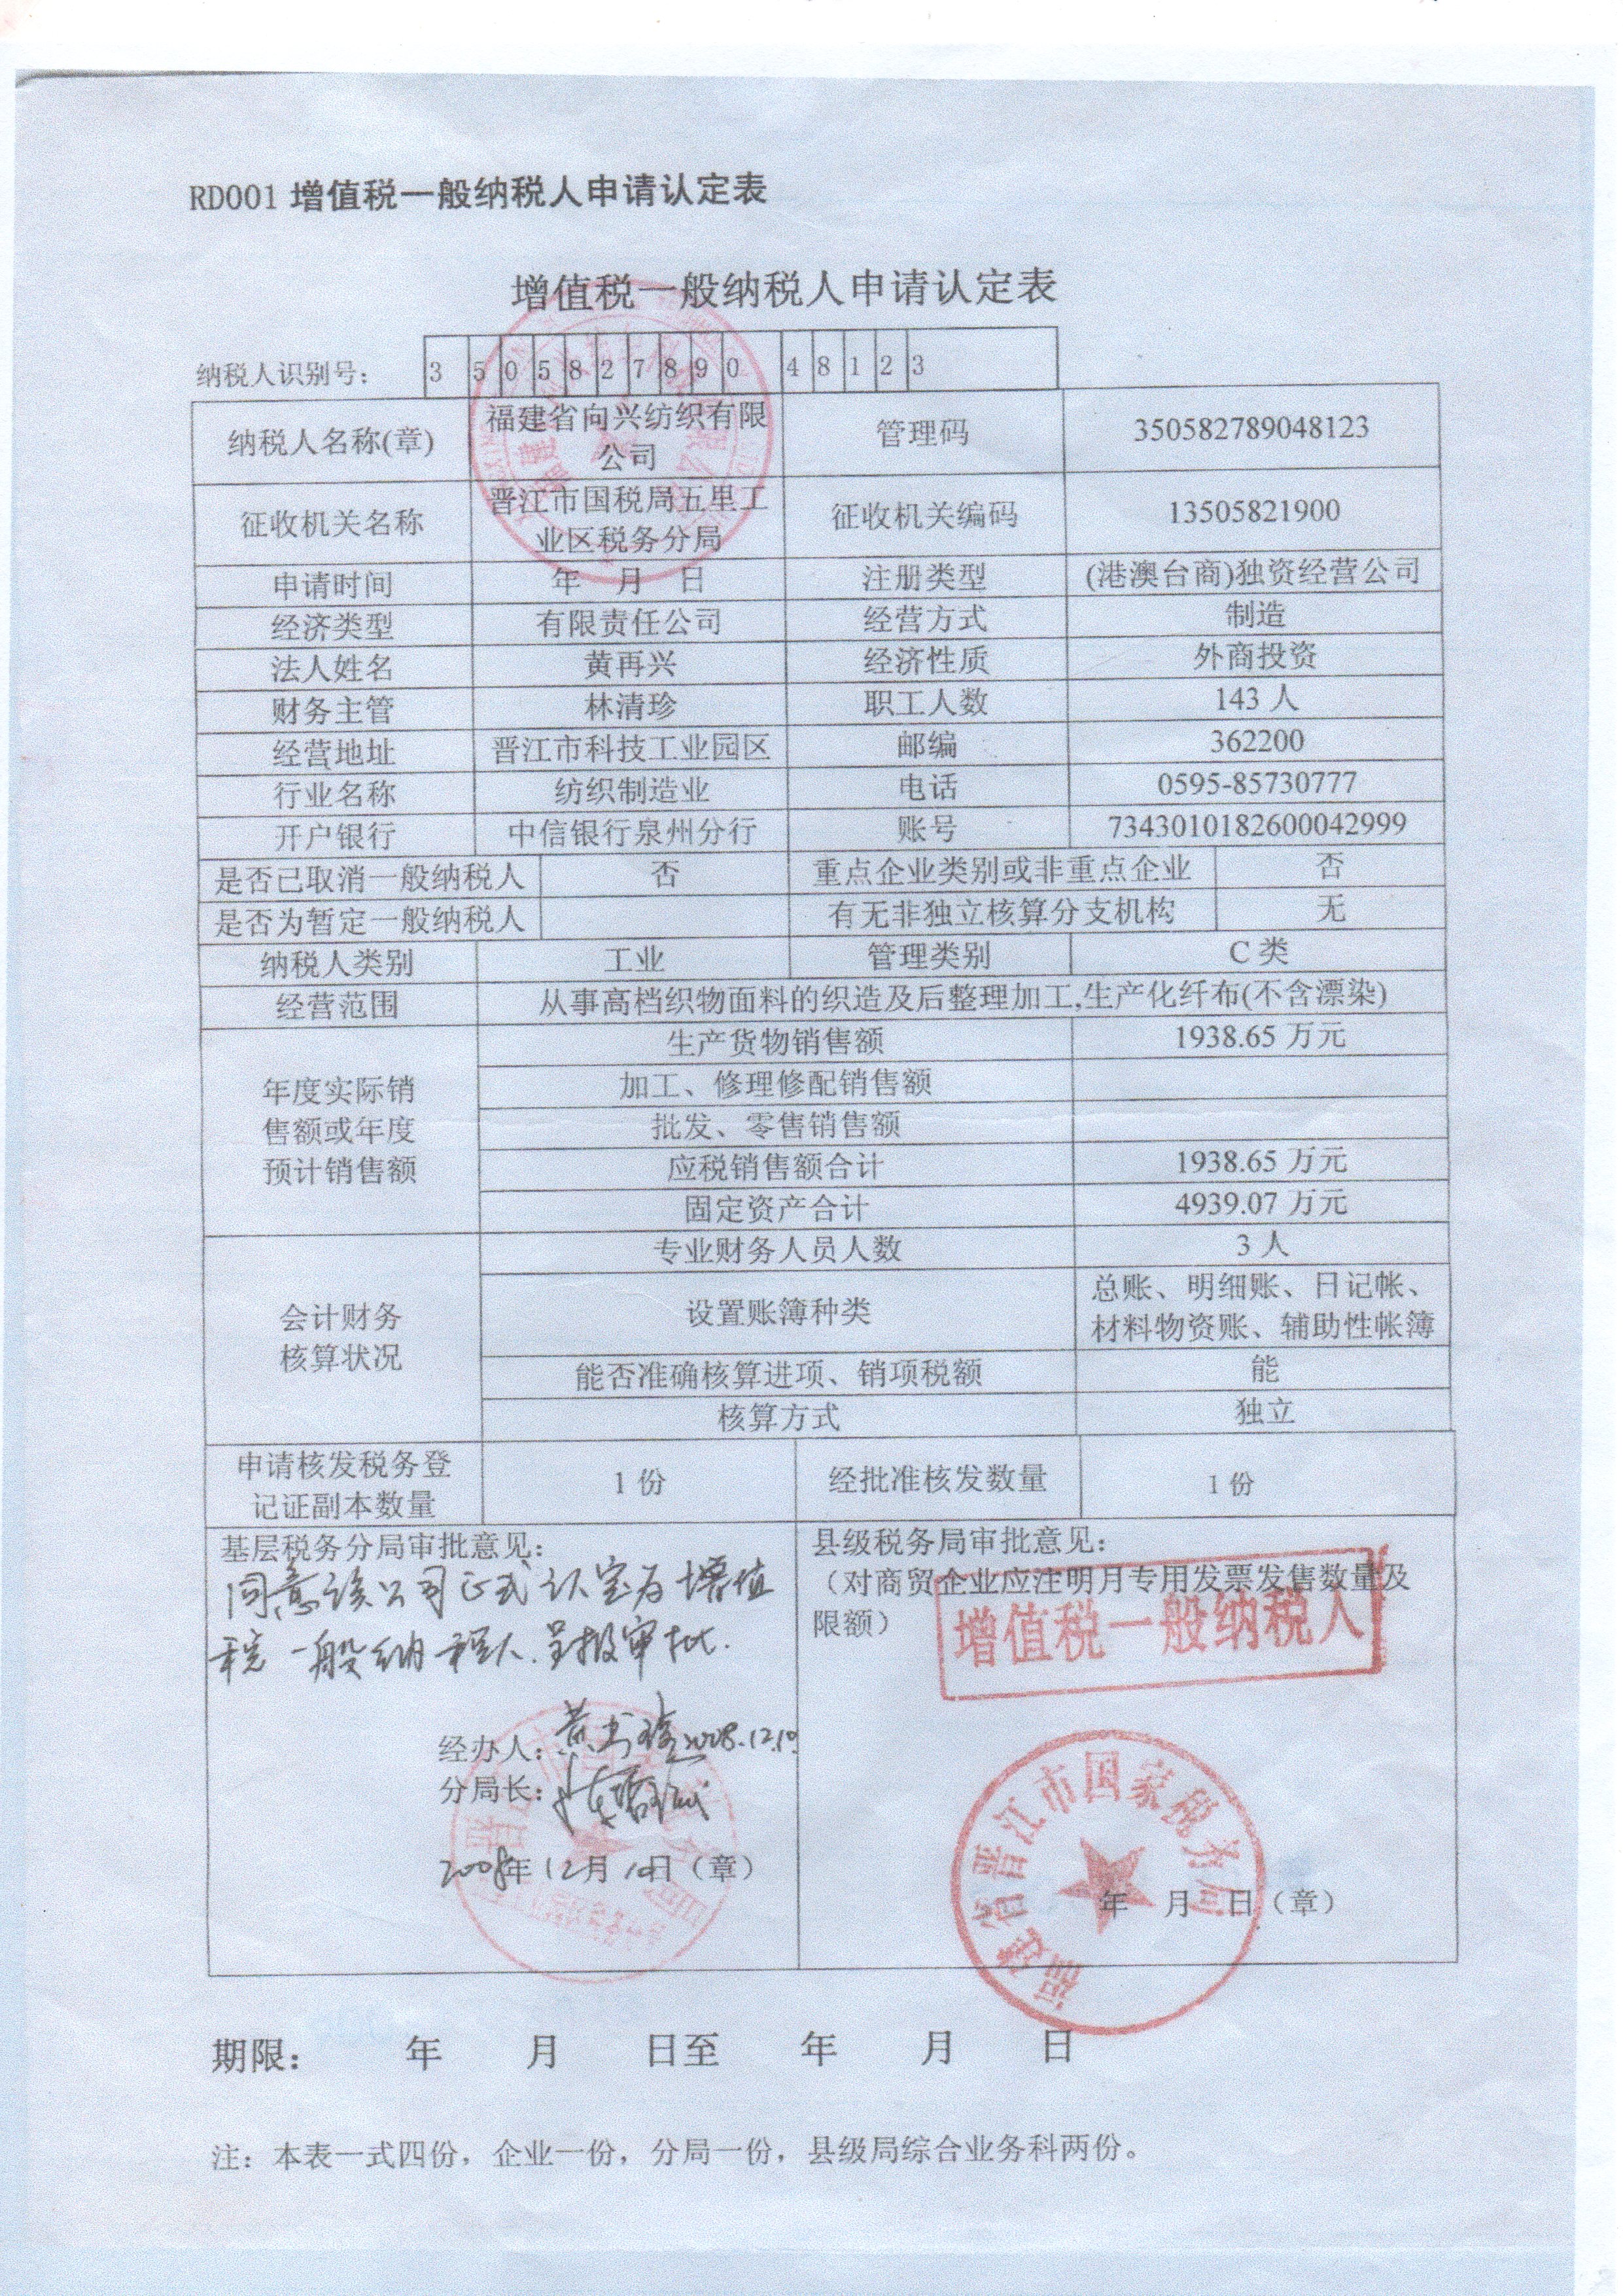 RD001 增值税一般纳税人申请认定表
增值税一般纳税人申请认定表
纳税人识别号： 350582789048123
纳税人名称(章) 福建省向兴纺织有限公司 管理码 350582789048123
征收机关名称 晋江市国税局五里工业区税务分局 征收机关编码 13505821900
申请时间 年 月 日 注册类型 (港澳台商)独资经营公司
经济类型 有限责任公司 经营方式 制造
法人姓名 黄再兴 经济性质 外商投资
财务主管 林清珍 职工人数 143 人
经营地址 晋江市科技工业园区 邮编 362200
行业名称 纺织制造业 电话 0595-85730777
开户银行 中信银行泉州分行 账号 7343010182600042999
是否已取消一般纳税人 否 重点企业类别或非重点企业 否
是否为暂定一般纳税人 有无非独立核算分支机构 无
纳税人类别 工业 管理类别 C 类
经营范围 从事高档织物面料的织造及后整理加工,生产化纤布(不含漂染)
年度实际销售额或年度预计销售额
生产货物销售额 1938.65 万元
加工、修理修配销售额
批发、零售销售额
应税销售额合计 1938.65 万元
固定资产合计 4939.07 万元
会计财务核算状况
专业财务人员人数 3 人
设置账簿种类 总账、明细账、日记帐、材料物资账、辅助性帐簿
能否准确核算进项、销项税额 能
核算方式 独立
申请核发税务登记证副本数量 1 份 经批准核发数量 1 份
基层税务分局审批意见：
同意该公司正式认定为增值
税一般纳税人.呈报审批.
经办人： 2008.12.10
分局长：
2008年12月10日（章）
县级税务局审批意见：
（对商贸企业应注明月专用发票发售数量及
限额）
增值税一般纳税人
福建省晋江市国家税务局
年 月 日（章）
期限： 年 月 日至 年 月 日
注：本表一式四份，企业一份，分局一份，县级局综合业务科两份。